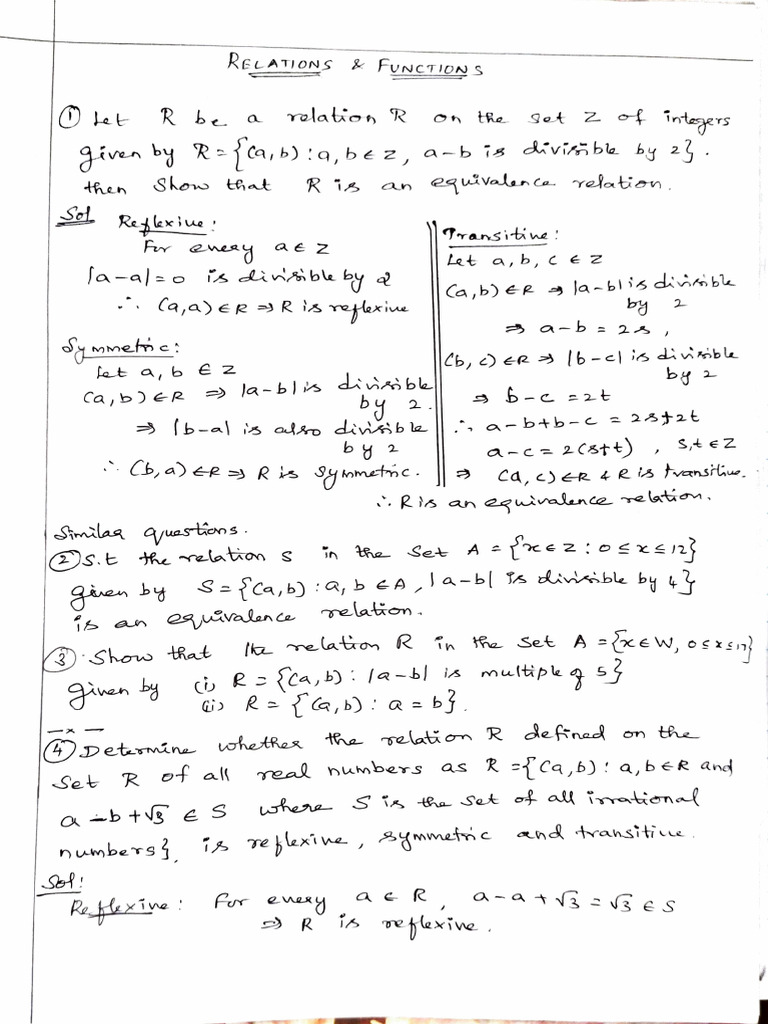 RELATIONS & FUNCTIONS
① Let R be a relation R on the set Z of integers
given by R = {(a,b) : a, b ∈ Z, a-b is divisible by 2}.
then show that R is an equivalence relation.
Sol Reflexive:
For every a ∈ Z
|a-a| = 0 is divisible by 2
∴ (a,a) ∈ R ⇒ R is reflexive
Symmetric:
Let a, b ∈ Z
(a,b) ∈ R ⇒ |a-b| is divisible
by 2.
⇒ |b-a| is also divisible
by 2
∴ (b,a) ∈ R ⇒ R is symmetric.
Transitive:
Let a, b, c ∈ Z
(a,b) ∈ R ⇒ |a-b| is divisible
by 2
⇒ a-b = 2s,
(b,c) ∈ R ⇒ |b-c| is divisible
by 2
⇒ b-c = 2t
∴ a-b+b-c = 2s+2t
a-c = 2(s+t), s,t ∈ Z
⇒ (a,c) ∈ R & R is transitive.
∴ R is an equivalence relation.
Similar questions.
② S.t the relation S in the set A = {x ∈ Z : 0 ≤ x ≤ 12}
given by S = {(a,b) : a, b ∈ A, |a-b| is divisible by 4}
is an equivalence relation.
③ Show that the relation R in the set A = {x ∈ W, 0 ≤ x ≤ 17}
given by (i) R = {(a,b) : |a-b| is multiple of 5}
(ii) R = {(a,b) : a = b}.
— x —
④ Determine whether the relation R defined on the
set R of all real numbers as R = {(a,b) : a, b ∈ R and
a-b+√3 ∈ S where S is the set of all irrational
numbers}, is reflexive, symmetric and transitive.
Sol:
Reflexive: For every a ∈ R, a-a+√3 = √3 ∈ S
⇒ R is reflexive.